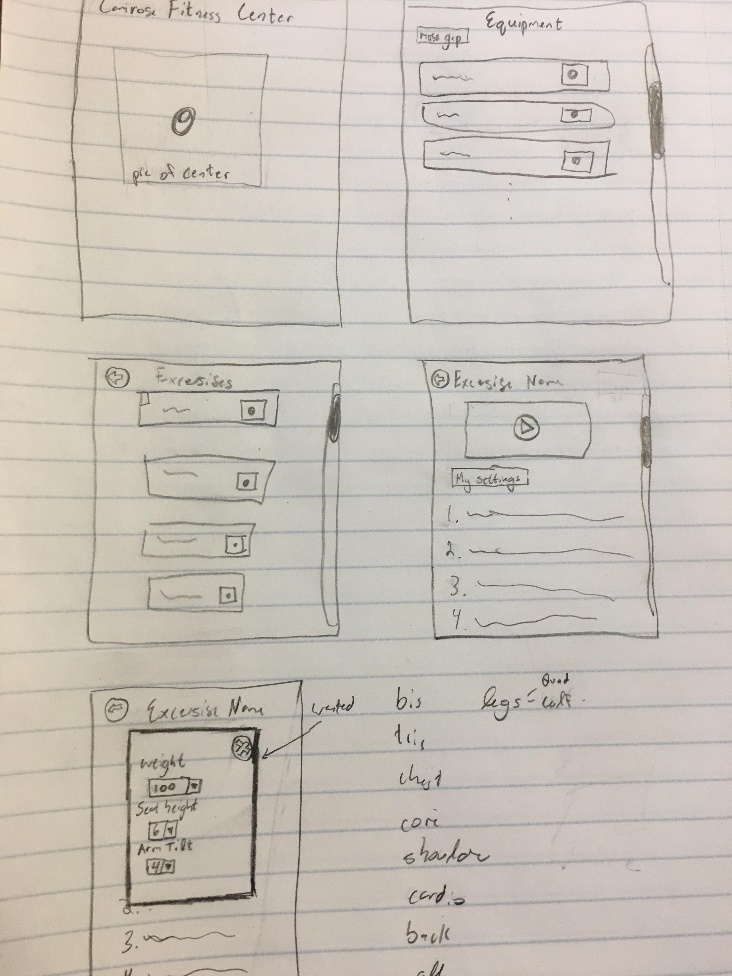 Camrose Fitness Center
pic of center
Equipment
Excersises
Excersise Name
My settings
1.
2.
3.
4.
Excersise Name
weight
100
Seat height
6
Arm Tilt
4
2.
3.
4.
bis
tris
chest
core
shoulder
cardio
back
legs - Quad
calf